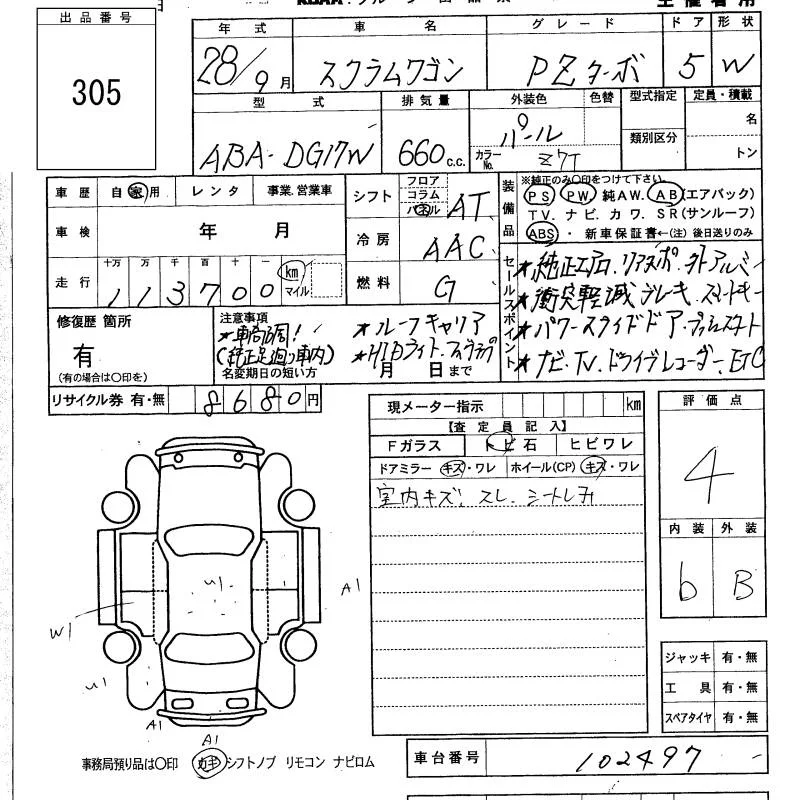 出品番号
305
年式 車名 グレード ドア 形状
28/9月 スクラムワゴン PZターボ 5 W
型式 排気量 外装色 色替 型式指定 定員・積載
ABA-DG17W 660c.c. パール
カラーNo. Z7T
類別区分 名
トン
車歴 自家用 レンタ 事業.営業車
車検 年 月
走行 十万 万 千 百 十 一
113700 km マイル
シフト フロア コラム パネル AT
冷房 AAC
燃料 G
装備品 ※純正のみ〇印をつけて下さい。
PS PW 純AW. AB(エアバック)
TV. ナビ. カワ. SR(サンルーフ)
ABS ・ 新車保証書←(注)後日送りのみ
セールスポイント
★純正エアロ.リアスポ.外アルミ
★衝突軽減ブレーキ.スマートキー
★パワースライドドア.プッシュスタート
★ナビ.TV.ドライブレコーダー.ETC
修復歴 箇所
有
(有の場合は〇印を)
注意事項
★車高調!
(純正足廻り車内)
★ルーフキャリア
★HIDライト.フォグランプ
名変期日の短い方 月 日まで
リサイクル券 有・無 8680円
現メーター指示 km
【査定員記入】
Fガラス トビ石 ヒビワレ
ドアミラー キズ・ワレ ホイール(CP) キズ・ワレ
室内キズ. スレ. シート
評価点
4
内装 外装
b B
U1
A1
W1
U1
A1
A1
ジャッキ 有・無
工具 有・無
スペアタイヤ 有・無
事務局預り品は〇印 カギ シフトノブ リモコン ナビロム
車台番号 102497